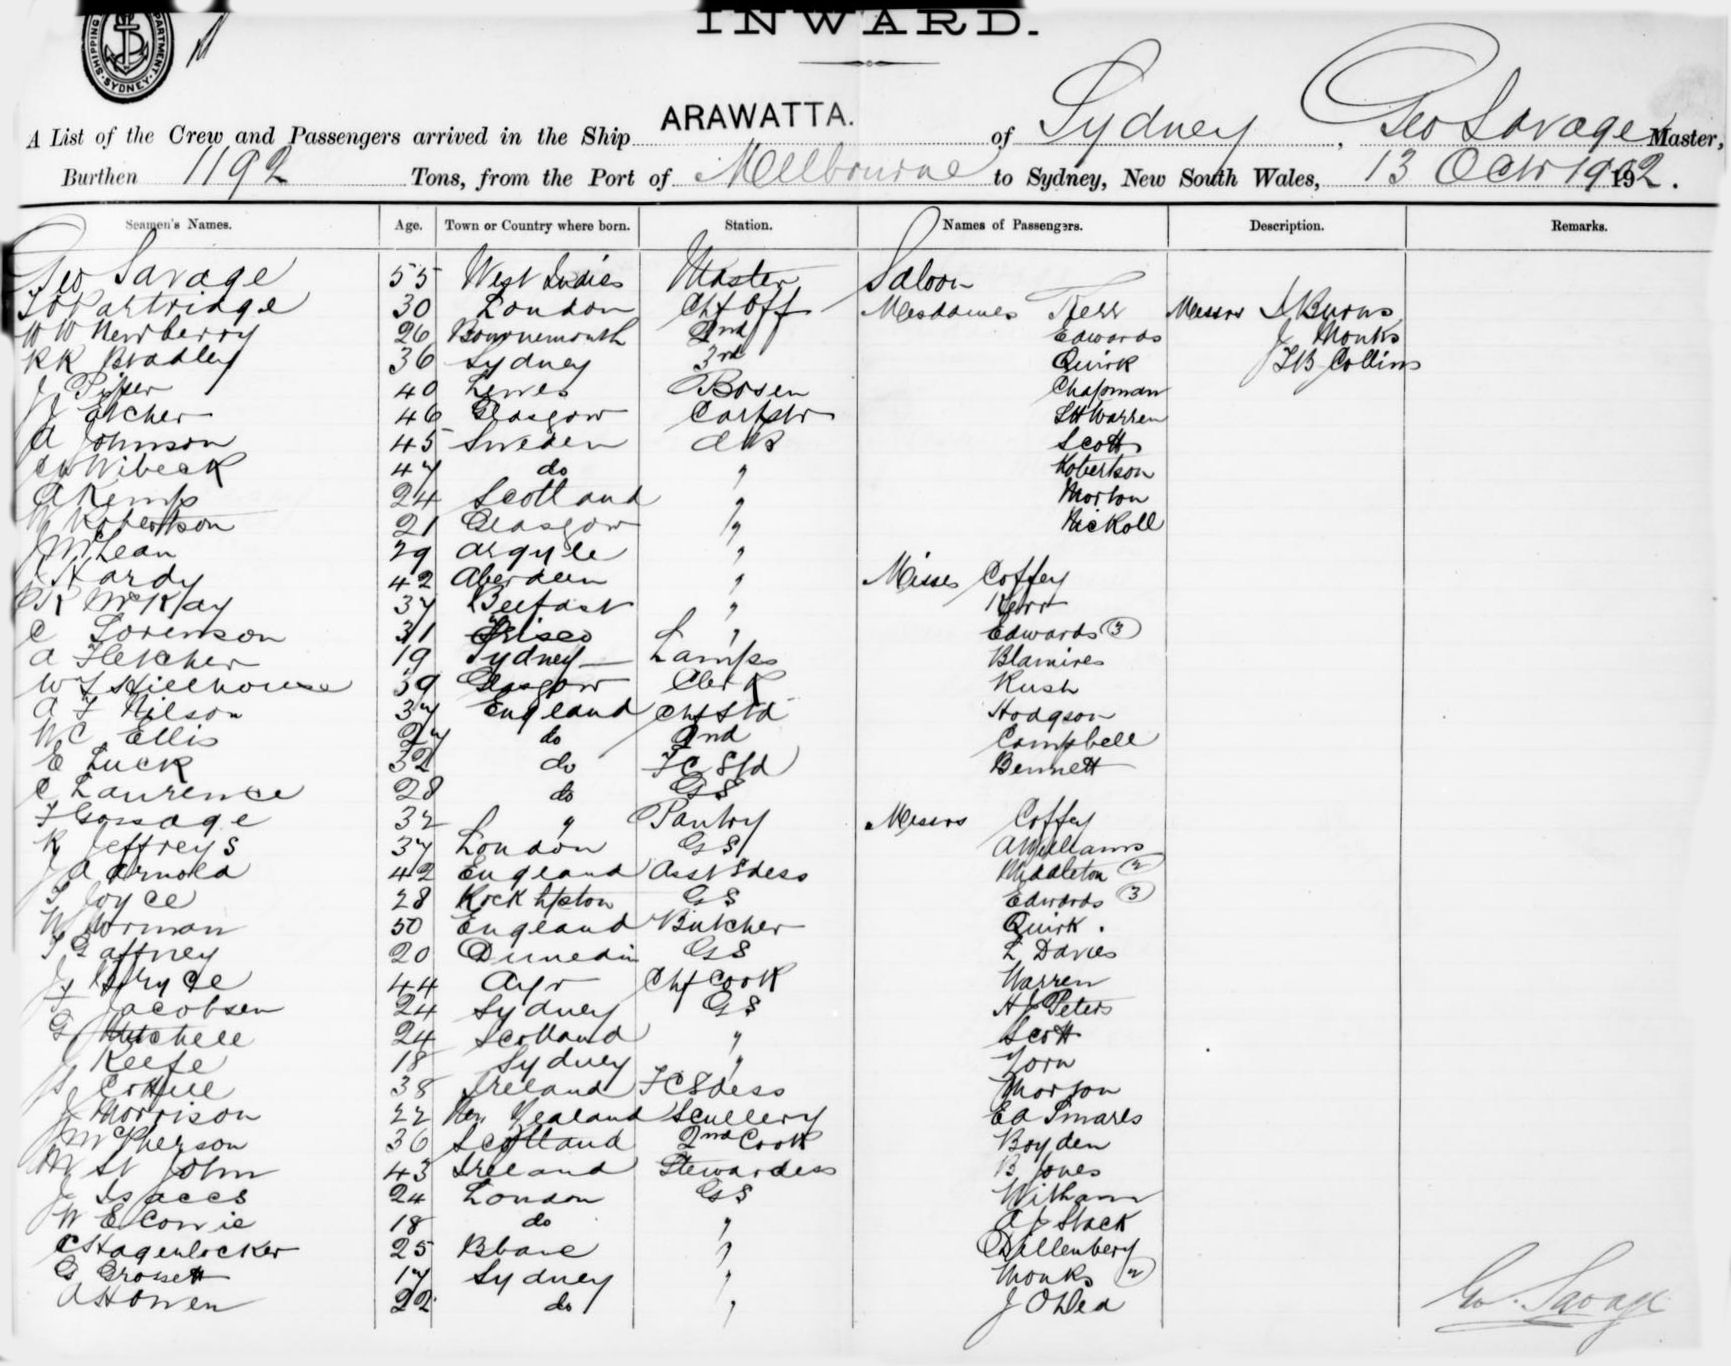 INWARD.
SHIPPING DEPARTMENT SYDNEY
A List of the Crew and Passengers arrived in the Ship ARAWATTA. of Sydney, Geo Savage Master,
Burthen 1192 Tons, from the Port of Melbourne to Sydney, New South Wales, 13 Oct 1902.
Seamen's Names. Age. Town or Country where born. Station. Names of Passengers. Description. Remarks.
Geo Savage 55 West Indies Master Saloon
Partridge 30 London Chf Off Mesdames Kerr Messrs J Burns
W W Newberry 26 Bournemouth 2nd Edwards J Monks
R R Bradley 36 Sydney 3rd Quirk Collins
J Piper 40 Lewes Bosen Chapman
J Etcher 46 Glasgow Carptr Warren
A Johnson 45 Sweden A B Scott
Wibeck 47 do " Robertson
A Kemp 24 Scotland " Morton
W Robertson 21 Glasgow " Nickoll
J McLean 29 Argyle "
J Hardy 42 Aberdeen " Misses Coffey
R McKay 37 Belfast " Kerr
C Sorenson 31 Frisco " Edwards 3
A Fletcher 19 Sydney Lamps Blamires
W J Hillhouse 39 Glasgow Clerk Rush
A F Nilson 37 England Chf Std Hodgson
W C Ellis 27 do 2nd Campbell
E Luck 32 do F C Std Bennett
C Laurence 28 do G S
F Gossage 32 " Pantry Messrs Coffey
R Jeffreys 37 London G S A Williams
J A Arnold 42 England Asst Sdess Middleton 2
Joyce 28 Rockhpton G S Edwards 3
W Worman 50 England Butcher Quirk.
T Gaffney 20 Dunedin G S L Davies
J Bryce 44 Ayr Chf Cook Warren
Jacobsen 24 Sydney G S H J Peters
G Mitchell 24 Scotland " Scott
J Keefe 18 Sydney " Yorn
38 Ireland F C Sdess Morton
J Morrison 22 New Zealand Scullery
J McPherson 36 Scotland 2nd Cook Boyden
M St John 43 Ireland Stewardess B Jones
J Isaccs 24 London G S Witham
W E Cowie 18 do " A J Stack
C Hagenlocker 25 Bbane " Dallenberg
G Grosett 17 Sydney " Monks 2
A H Owen 22 do " J O'Dea
Geo. Savage